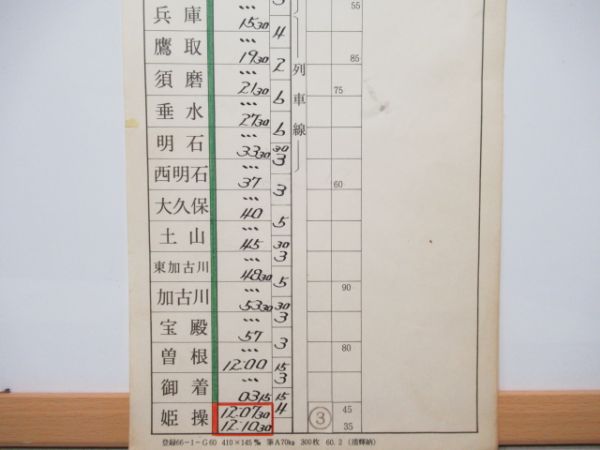 3 55
兵庫 … 15 30 4
鷹取 … 19 30 2 85
須磨 … 21 30 6 75
垂水 … 27 30 6
明石 … 33 30 30 3
西明石 … 37 3 60
大久保 … 40 5
土山 … 45 30 3
東加古川 … 48 30 5 90
加古川 … 53 30 30 3
宝殿 … 57 3 80
曽根 … 12 00 15 3
御着 … 03 15 15 4
姫操 12 07 30 ③ 45
12 10 30 35
列車線
登録66-1-G60 410×145㎜ 筆A70kg 300枚 60.2